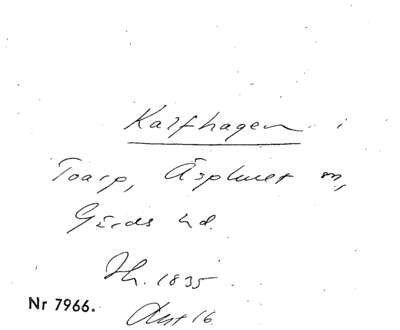 Kalfhagen i
Toarp, Äsphult sn,
Gärds hd.
Th. 1835.
Nr 7966.
Akt 16